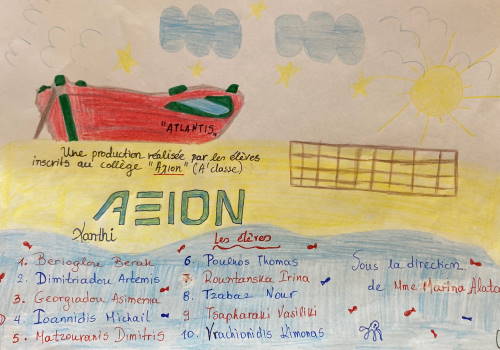 "ATLANTIS"
Une production réalisée par les élèves
inscrits au collège "Axion" (A'classe)
AΞION
Xanthi
Les élèves
1. Berioglou Berak
2. Dimitriadou Artemis
3. Georgiadou Asimenia
4. Ioannidis Michail
5. Matzouranis Dimitris
6. Poulios Thomas
7. Rountanska Irina
8. Tzabaz Nour
9 Tsapharaki Vasiliki
10. Vrachionidis Kimonas
Sous la direction
de Mme Marina